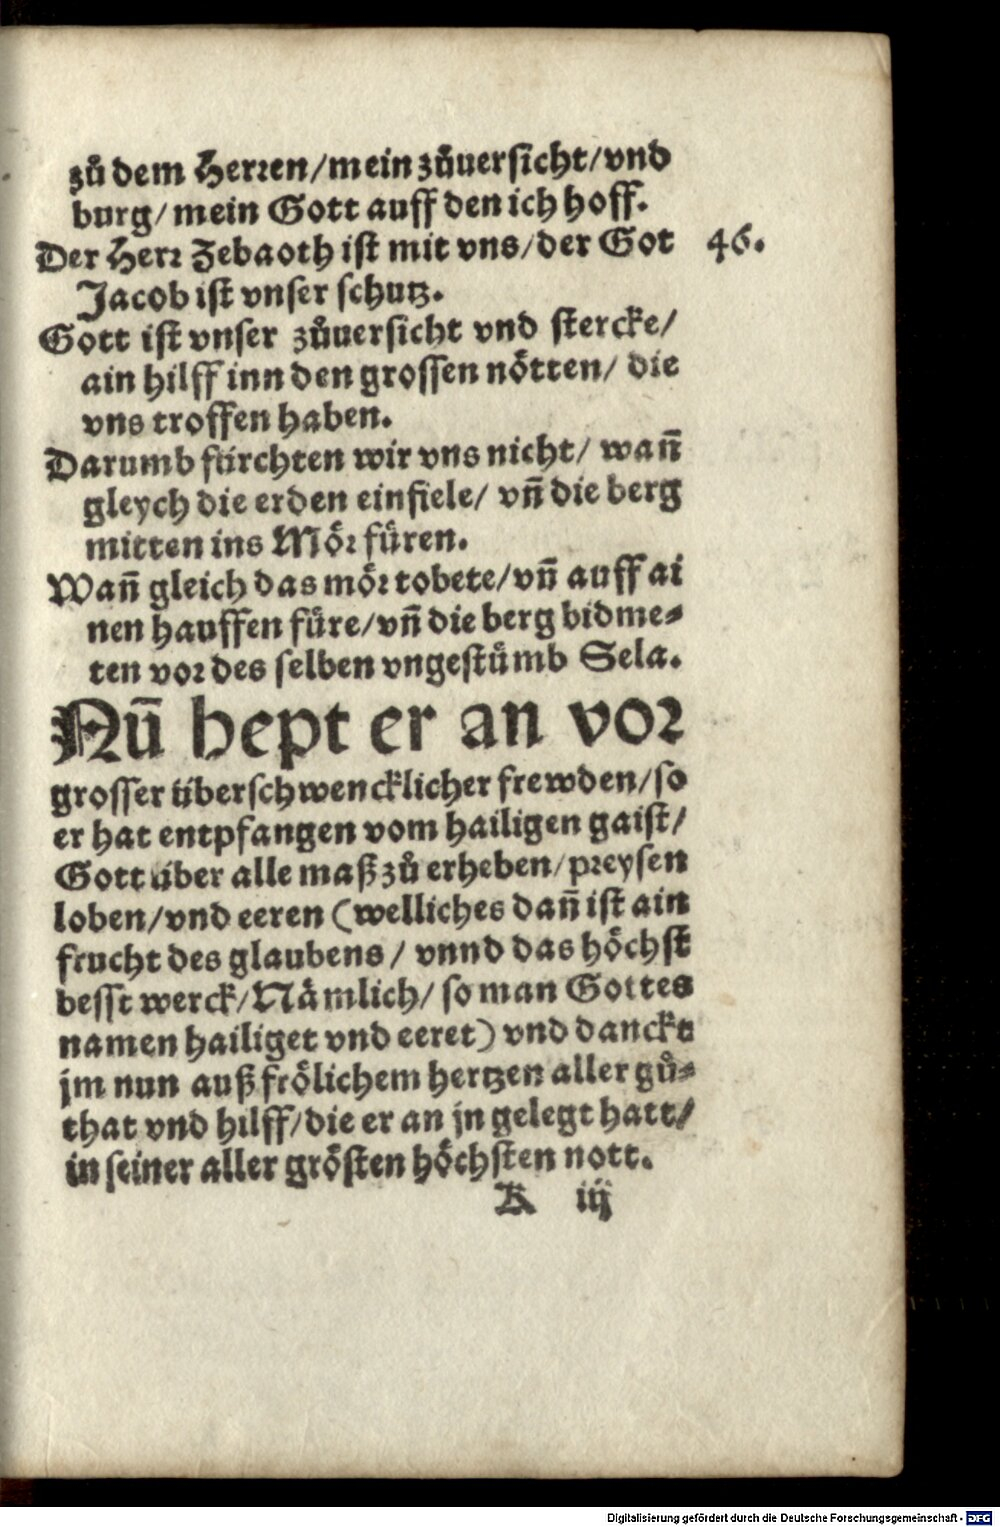 zů dem Herren/mein zůuersicht/vnd
burg/mein Gott auff den ich hoff.
Der Herr Zebaoth ist mit vns/der Got 46.
Jacob ist vnser schutz.
Gott ist vnser zůuersicht vnd stercke/
ain hilff inn den grossen nötten/ die
vns troffen haben.
Darumb fürchten wir vns nicht/ wañ
gleych die erden einfiele/ vñ die berg
mitten ins Mör füren.
Wañ gleich das mör tobete/vñ auff ai
nen hauffen füre/vñ die berg bidme⸗
ten vor des selben vngestümb Sela.
Nū hept er an vor
grosser überschwencklicher frewden/so
er hat entpfangen vom hailigen gaist/
Gott über alle maß zů erheben/preysen
loben/vnd eeren (welliches dañ ist ain
frucht des glaubens/ vnnd das höchst
besst werck/Nämlich/ so man Gottes
namen hailiget vnd eeret) vnd danckt
jm nun auß frölichem hertzen aller gů⸗
that vnd hilff/die er an jn gelegt hatt/
in seiner aller grösten höchsten nott.
K iij
Digitalisierung gefördert durch die Deutsche Forschungsgemeinschaft - DFG